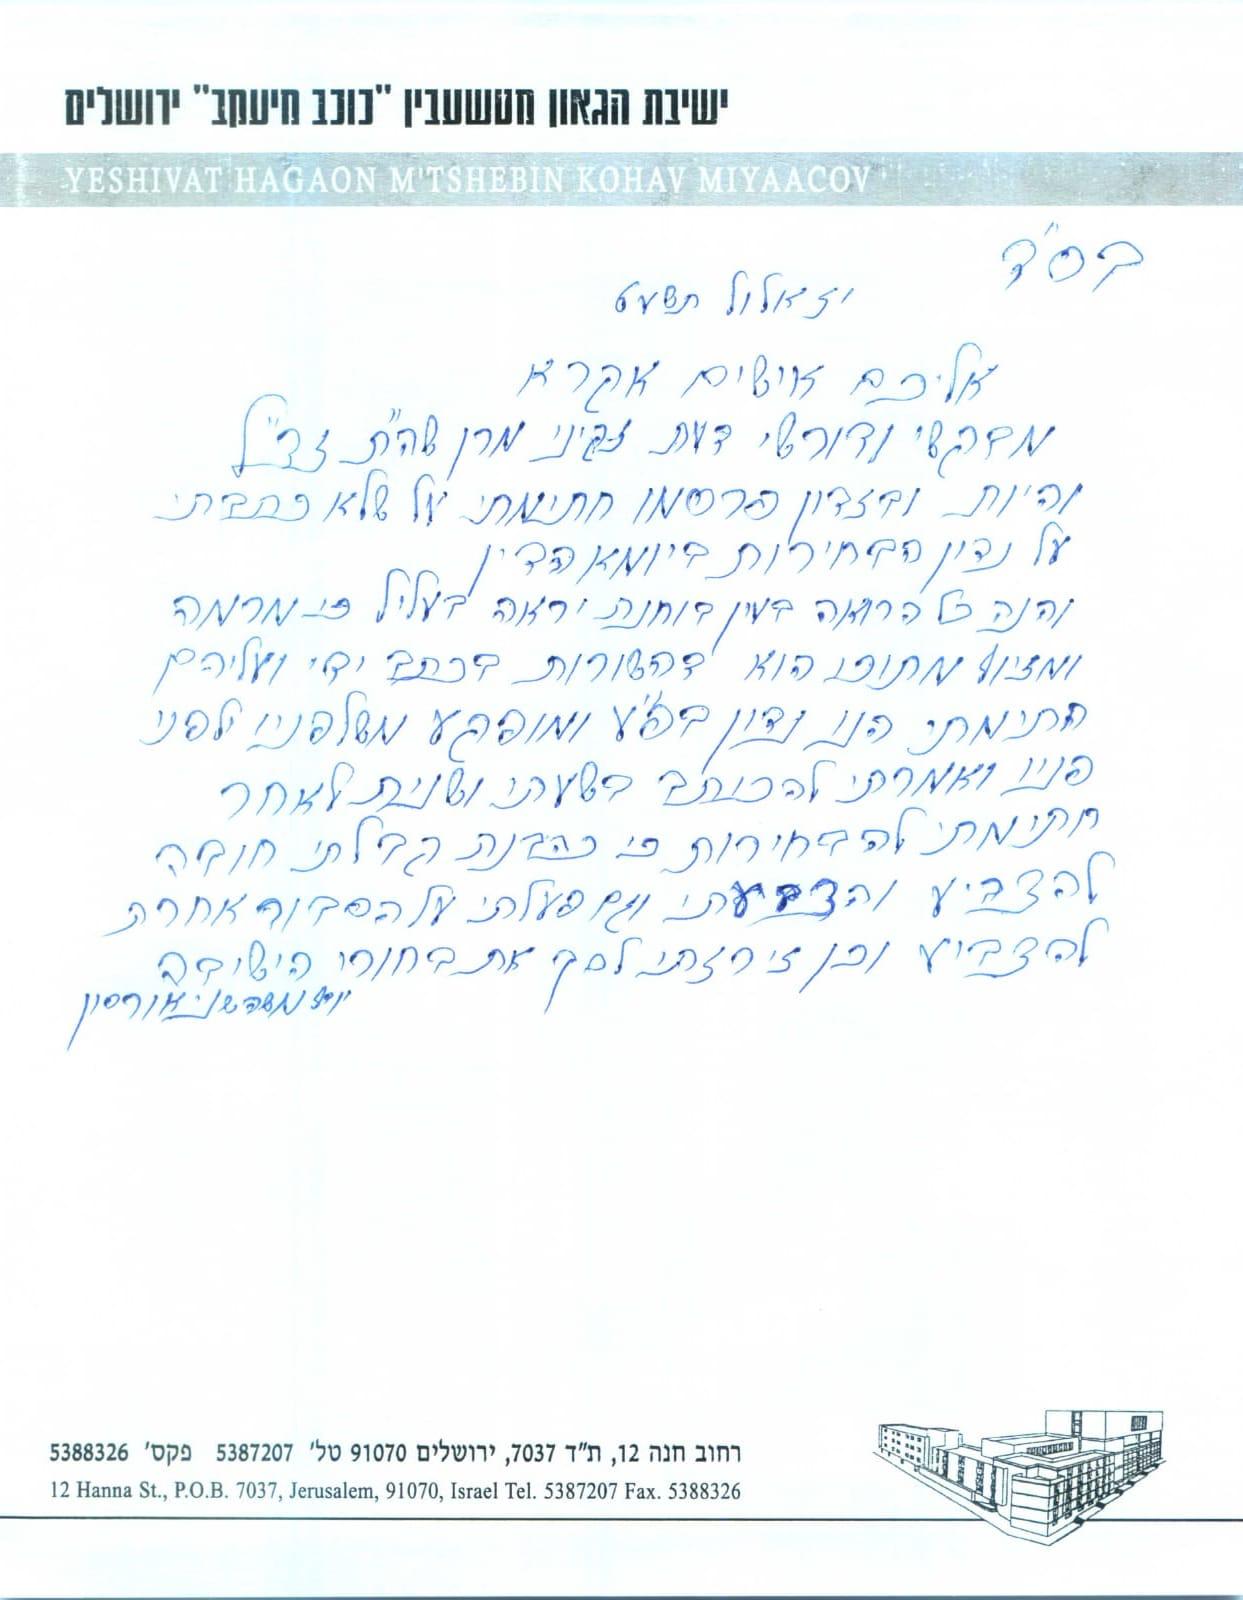 ישיבת הגאון מטשעבין "כוכב מיעקב" ירושלים
YESHIVAT HAGAON M'TSHEBIN KOHAV MIYAACOV
בס"ד
יז אלול תשעט
אליכם אישים אקרא
מבקשי ודורשי דעת זקיני מרן שה"ת זצ"ל
והיות ובזדון פרסמו חתימתי על שלא כתבתי
על נדון הבחירות ביומא הדין
והנה כל הרואה בעין בוחנת יראה בעליל כי מרמה
ומזויף מתוכו הוא דהשורות בכתב ידי ועליהם
חתימתי הנו נדון בפ"ע ומופקע משלפניו ולפני
פניו ואמרתי להכותב בשעתי ושנית לאחר
חתימתי להבחירות כי כהבנת קבלתי חובה
להצביע והצבעתי וגם פעלתי על הסבור אחרת
להצביע וכן זירזתי לסגך את בחורי הישיבה
יוסף משה שניאורסון
רחוב חנה 12, ת"ד 7037, ירושלים 91070 טל' 5387207 פקס' 5388326
12 Hanna St., P.O.B. 7037, Jerusalem, 91070, Israel Tel. 5387207 Fax. 5388326